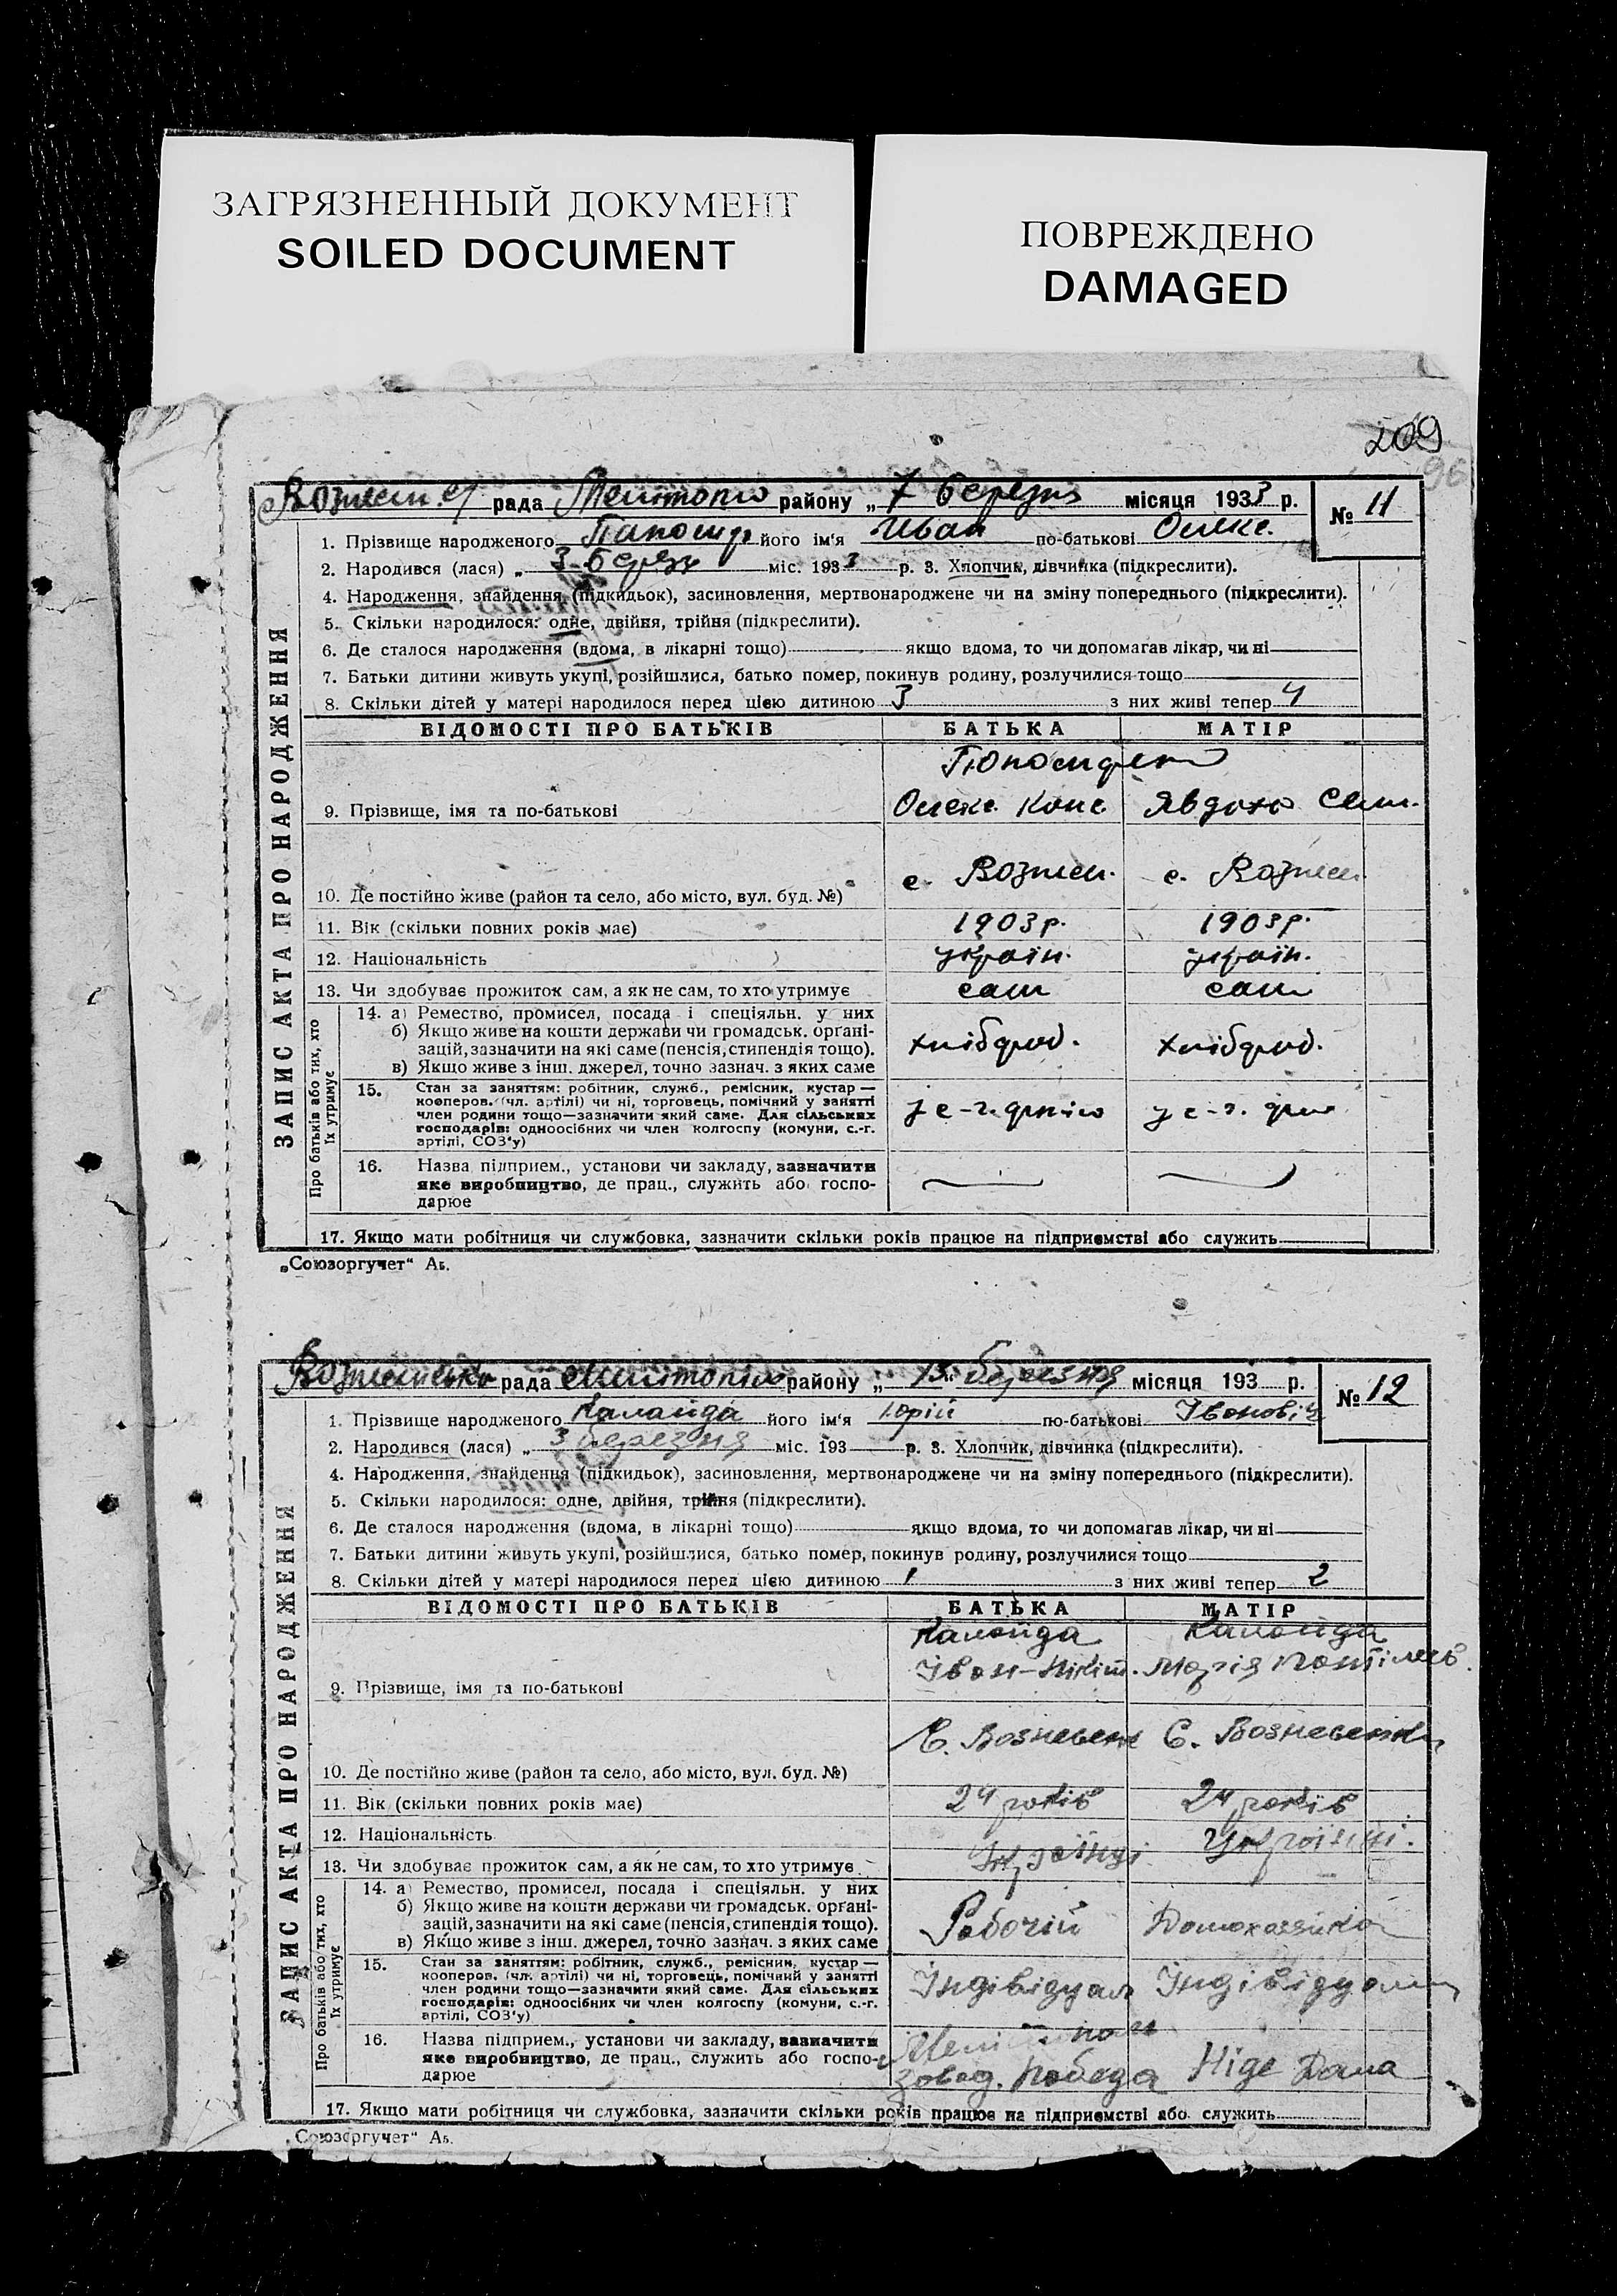 ЗАГРЯЗНЕННЫЙ ДОКУМЕНТ
SOILED DOCUMENT
ПОВРЕЖДЕНО
DAMAGED
209
96
рада району „7 березня місяця 1933 р. № 11
ЗАПИС АКТА ПРО НАРОДЖЕННЯ
1. Прізвище народженого його ім'я Иван по-батькові Олекс.
2. Народився (лася) „ 3 берез міс. 1933 р. 3. Хлопчик, дівчинка (підкреслити).
4. Народження, знайдення (підкидьок), засиновлення, мертвонароджене чи на зміну попереднього (підкреслити).
5. Скільки народилося: одне, двійня, трійня (підкреслити).
6. Де сталося народження (вдома, в лікарні тощо) якщо вдома, то чи допомагав лікар, чи ні
7. Батьки дитини живуть укупі, розійшлися, батько помер, покинув родину, розлучилися тощо
8. Скільки дітей у матері народилося перед цією дитиною 3 з них живі тепер 4
ВІДОМОСТІ ПРО БАТЬКІВ БАТЬКА МАТІР
9. Прізвище, імя та по-батькові Олекс. Конс. Явдоха Сем.
10. Де постійно живе (район та село, або місто, вул. буд. №) с. Вознес. с. Вознес.
11. Вік (скільки повних років має) 1903 р. 1903 р.
12. Національність україн. україн.
13. Чи здобуває прожиток сам, а як не сам, то хто утримує сам сам
Про батьків або тих, хто їх утримує
14. а) Ремество, промисел, посада і спеціяльн. у них
б) Якщо живе на кошти держави чи громадськ. органі-
зацій, зазначити на які саме (пенсія, стипендія тощо). хлібороб. хлібороб.
в) Якщо живе з інш. джерел, точно зазнач. з яких саме
15. Стан за заняттям: робітник, служб., ремісник, кустар —
кооперов. (чл. артілі) чи ні, торговець, помічний у занятті
член родини тощо—зазначити який саме. Для сільських
господарів: одноосібних чи член колгоспу (комуни, с.-г.
артілі, СОЗ'у)
16. Назва підприєм., установи чи закладу, зазначити
яке виробництво, де прац., служить або госпо-
дарює
17. Якщо мати робітниця чи службовка, зазначити скільки років працює на підприємстві або служить
„Союзоргучет“ Аб.
рада району „13“ березня місяця 193 р. № 12
ЗАПИС АКТА ПРО НАРОДЖЕННЯ
1. Прізвище народженого Каланда його ім'я Юрій по-батькові Івонович
2. Народився (лася) „ 3 березня міс. 193 р. 3. Хлопчик, дівчинка (підкреслити).
4. Народження, знайдення (підкидьок), засиновлення, мертвонароджене чи на зміну попереднього (підкреслити).
5. Скільки народилося: одне, двійня, трійня (підкреслити).
6. Де сталося народження (вдома, в лікарні тощо) якщо вдома, то чи допомагав лікар, чи ні
7. Батьки дитини живуть укупі, розійшлися, батько помер, покинув родину, розлучилися тощо
8. Скільки дітей у матері народилося перед цією дитиною 1 з них живі тепер 2
ВІДОМОСТІ ПРО БАТЬКІВ БАТЬКА МАТІР
Каланда Каланда
Івон Нікіт. Марія
9. Прізвище, імя та по-батькові
С. С.
10. Де постійно живе (район та село, або місто, вул. буд. №)
11. Вік (скільки повних років має) 24 років 24 років
12. Національність Українці.
13. Чи здобуває прожиток сам, а як не сам, то хто утримує Українці
Про батьків або тих, хто їх утримує
14. а) Ремество, промисел, посада і спеціяльн. у них
б) Якщо живе на кошти держави чи громадськ. органі-
зацій, зазначити на які саме (пенсія, стипендія тощо). Робочій Домохазяйка
в) Якщо живе з інш. джерел, точно зазнач. з яких саме
15. Стан за заняттям: робітник, служб., ремісник, кустар —
кооперов. (чл. артілі) чи ні, торговець, помічний у занятті
член родини тощо—зазначити який саме. Для сільських Індівідуал
господарів: одноосібних чи член колгоспу (комуни, с.-г.
артілі, СОЗ'у)
16. Назва підприєм., установи чи закладу, зазначити
яке виробництво, де прац., служить або госпо-
дарює завод. Победа Ніде Дома
17. Якщо мати робітниця чи службовка, зазначити скільки років працює на підприємстві або служить
„Союзоргучет“ Аб.